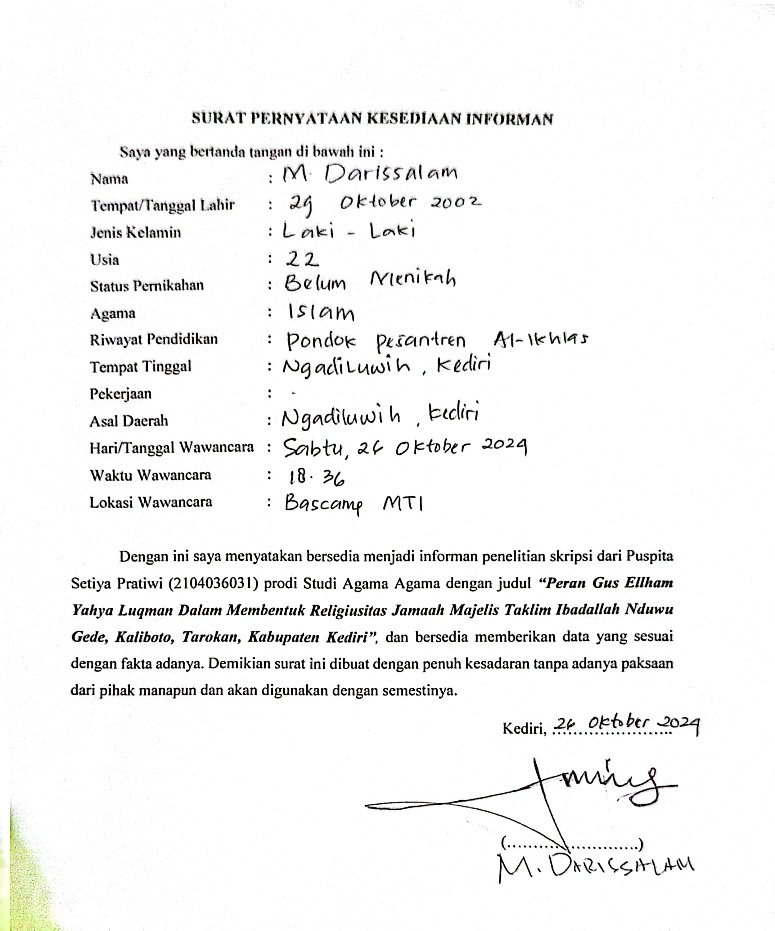 SURAT PERNYATAAN KESEDIAAN INFORMAN
Saya yang bertanda tangan di bawah ini :
Nama : M. Darissalam
Tempat/Tanggal Lahir : 29 Oktober 2002
Jenis Kelamin : Laki - Laki
Usia : 22
Status Pernikahan : Belum Menikah
Agama : Islam
Riwayat Pendidikan : Pondok pesantren Al-Ikhlas
Tempat Tinggal : Ngadiluwih, Kediri
Pekerjaan : -
Asal Daerah : Ngadiluwih, Kediri
Hari/Tanggal Wawancara : Sabtu, 26 Oktober 2024
Waktu Wawancara : 18.36
Lokasi Wawancara : Bascamp MTI
Dengan ini saya menyatakan bersedia menjadi informan penelitian skripsi dari Puspita
Setiya Pratiwi (2104036031) prodi Studi Agama Agama dengan judul “Peran Gus Ellham
Yahya Luqman Dalam Membentuk Religiusitas Jamaah Majelis Taklim Ibadallah Nduwu
Gede, Kaliboto, Tarokan, Kabupaten Kediri”, dan bersedia memberikan data yang sesuai
dengan fakta adanya. Demikian surat ini dibuat dengan penuh kesadaran tanpa adanya paksaan
dari pihak manapun dan akan digunakan dengan semestinya.
Kediri, 26 Oktober 2024
(........................)
M. DARISSALAM